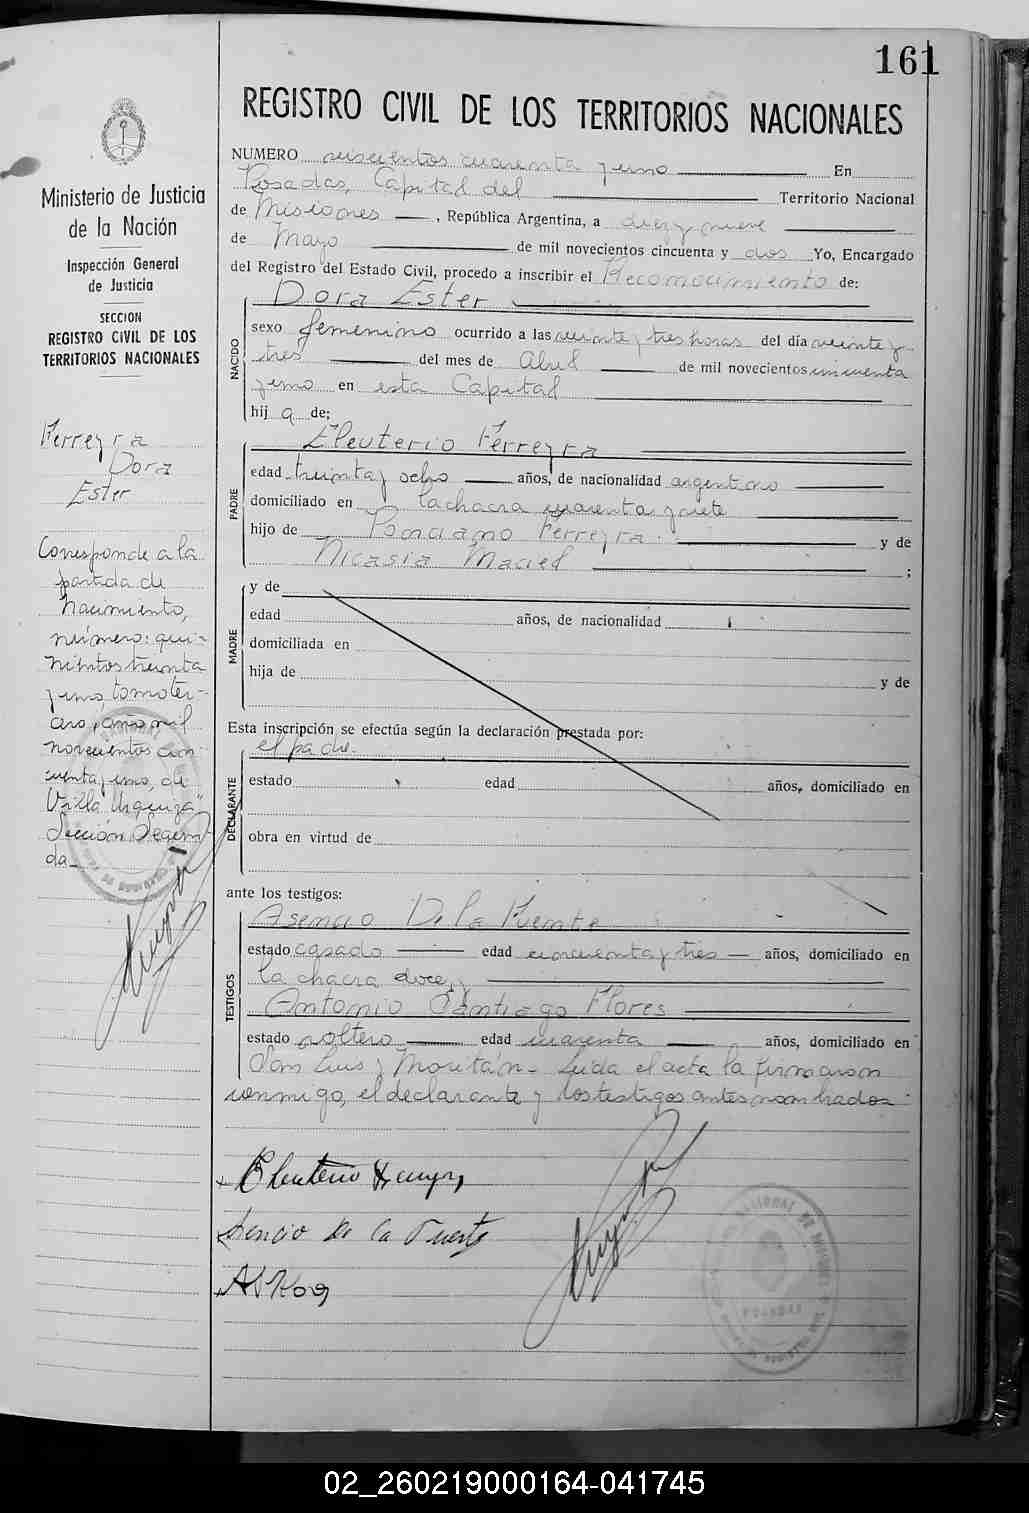 161
REGISTRO CIVIL DE LOS TERRITORIOS NACIONALES
Ministerio de Justicia
de la Nación
Inspección General
de Justicia
SECCION
REGISTRO CIVIL DE LOS
TERRITORIOS NACIONALES
Ferreyra
Dora
Ester
Corresponde a la
partida de
nacimiento,
número: qui-
nientos treinta
y uno, tomo ter-
cero, año mil
novecientos cin-
cuenta y uno, de
"Villa Urquiza"
Sección Segun-
da_
NUMERO seiscientos cuarenta y uno En
Posadas, Capital del Territorio Nacional
de Misiones, República Argentina, a diez y nueve
de Mayo de mil novecientos cincuenta y dos Yo, Encargado
del Registro del Estado Civil, procedo a inscribir el Reconocimiento de:
NACIDO
Dora Ester
sexo femenino ocurrido a las veinte y tres horas del día veinte y
tres del mes de Abril de mil novecientos cincuenta
y uno en esta Capital
hij a de:
PADRE
Eleuterio Ferreyra
edad treinta y ocho años, de nacionalidad argentino
domiciliado en la chacra cuarenta y siete
hijo de Ponciano Ferreyra y de
Nicasia Maciel ;
MADRE
y de
edad años, de nacionalidad
domiciliada en
hija de y de
Esta inscripción se efectúa según la declaración prestada por:
DECLARANTE
el padre.
estado edad años, domiciliado en
obra en virtud de
ante los testigos:
TESTIGOS
Asencio De la Fuente
estado casado edad cincuenta y tres años, domiciliado en
la chacra doce, y
Antonio Santiago Flores
estado soltero edad cuarenta años, domiciliado en
San Luis y Moritán.- Leída el acta la firmaron
conmigo, el declarante y los testigos antes nombrados.
Eleuterio Ferreyra
Asencio De la Fuente
POSADAS
02_260219000164-041745